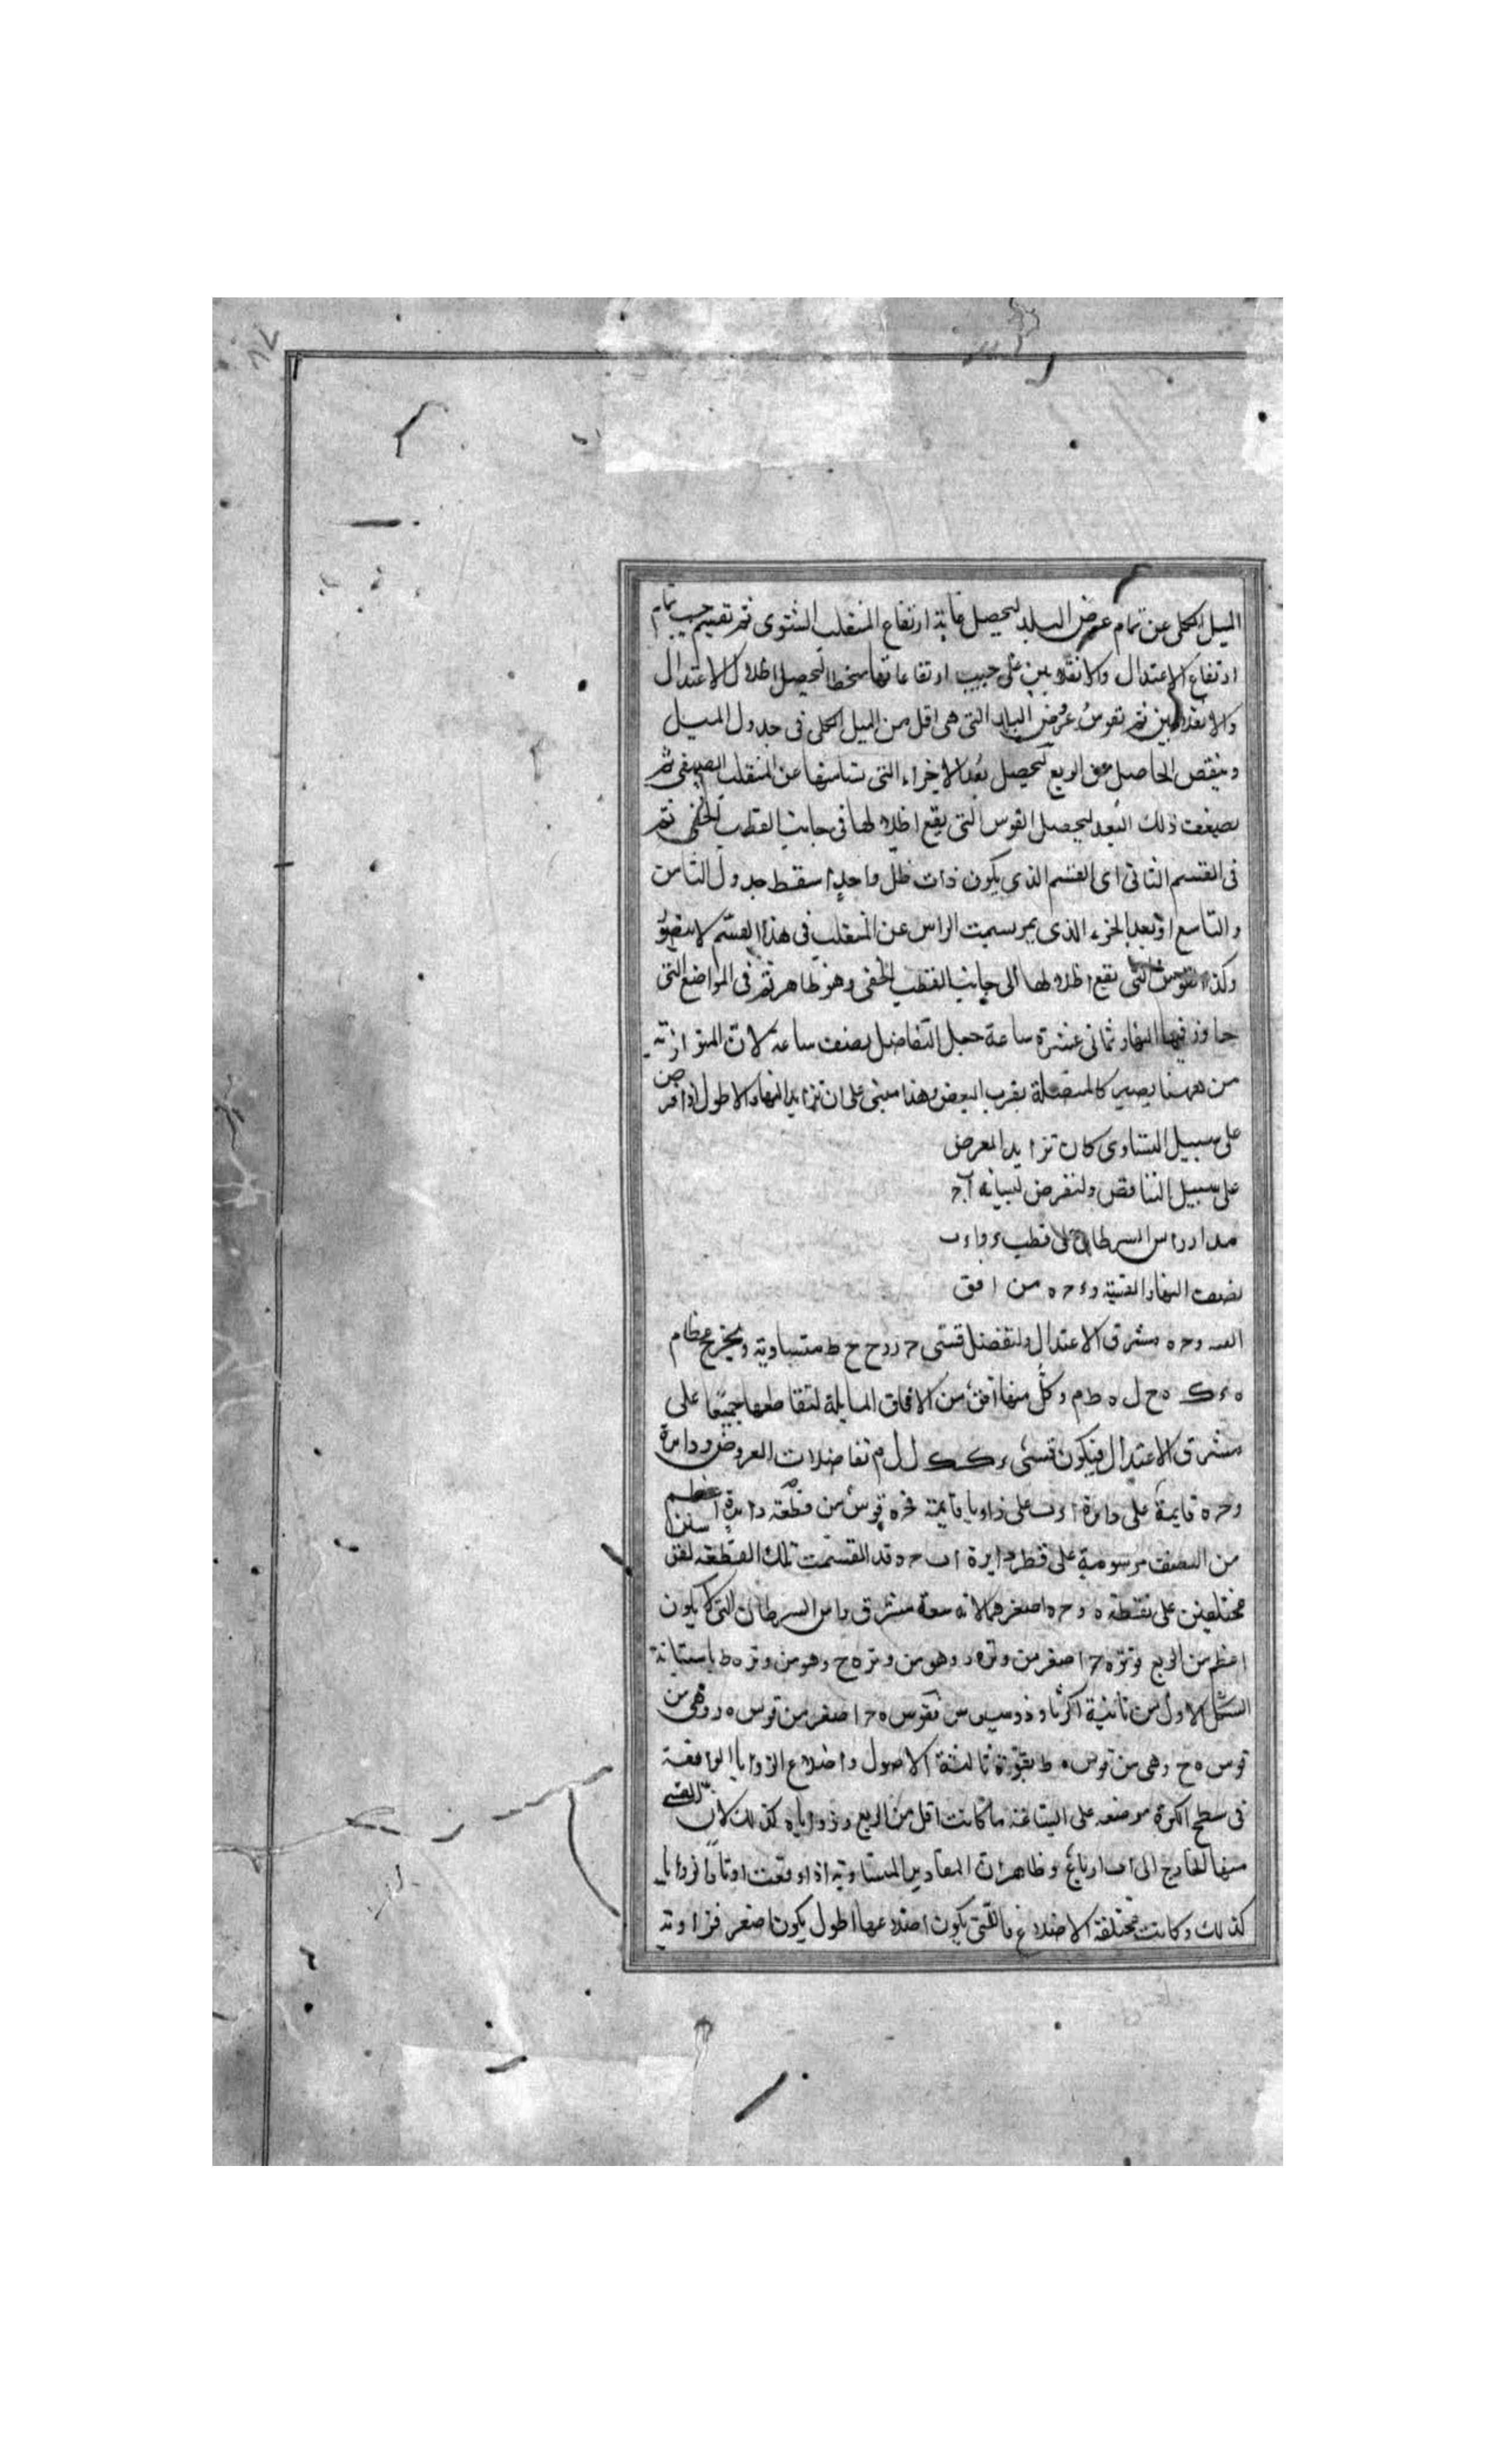 الميل الكلى عن تمام عرض البلد ليحصل غاية ارتفاع المنقلب الشتوى ثم تقسيم جيب تمام
ارتفاع الاعتدال والانقلابين على جيب ارتفاعاتها منحطا ليحصل اظلال الاعتدال
والانقلابين ثم تقوس عروض البلاد التى هى اقل من الميل الكلى فى جدول الميل
وينقص الحاصل من الربع ليحصل بعد الاجزاء التى تسامتها عن المنقلب الصيفى ثم
يضعف ذلك البعد ليحصل القوس التى يقع اظلالها فى جانب القطب الخفى ثم
فى القسم الثانى اى القسم الذى يكون ذات ظل واحد اسقط جدول الثامن
والتاسع اذ بعد الجزء الذى يمر بسمت الراس عن المنقلب فى هذا القسم لا يتصور
وكذا القوس التى تقع اظلالها الى جانب القطب الخفى وهو ظاهر ثم فى المواضع التى
جاوز فيها النهار ثمانى عشرة ساعة جعل التفاضل بنصف ساعة لان المتوازية
من ههنا يصير كالمتصلة بقرب البعض وهذا مبنى على ان تزايد النهار الاطول اذا فرض
على سبيل التساوى كان تزايد العرض
على سبيل التناقص ولنفرض لبيانه ا ب ح
مدار راس السرطان على قطب
نصف النهار القبتية و ء ح ه من افق
القبه و ح ه مشرق الاعتدال ولنفضل قسى ح ز ز ح ح ط متساوية ويخرج عظام
ه ز ك ه ح ل ه ط م وكل منها افق من الافاق المايلة لتقاطعها جميعا على
مشرق الاعتدال فيكون قسى ء ك ك ل ل م تفاضلات العروض ودايرة
و ح ه قايمة على دايرة على زوايا قايمة فح ه قوس من قطعة دايرة اعظم
من النصف مرسومة على قطر دايرة ا ب ح وقد انقسمت تلك القطعة بقسمين
مختلفين على نقطة ه و ح ه اصغرهما لانه سعة مشرق راس السرطان التى لا يكون
اعظم من الربع فوتر ه ح اصغر من وتر ه ز وهو من وتر ه ح وهو من وتر ه ط باستبانة
الشكل الاول من ثانية اكر ثاوذوسيوس فقوس ه ح اصغر من قوس ه ز وهى من
قوس ه ح وهى من قوس ه ط بقوة ثالثة الاصول واضلاع الزوايا الواقعة
فى سطح الكرة موضعه على السابقة ما كانت اقل من الربع وزوايا ه كذلك لان القسى
منها الخارج الى ا ب ارباع وظاهر ان المقادير المتساوية اذا وقعت اوتار الزوايا
كذلك وكانت مختلفة الاضلاع فالتى يكون اضلاعها اطول يكون اصغر فزاوية